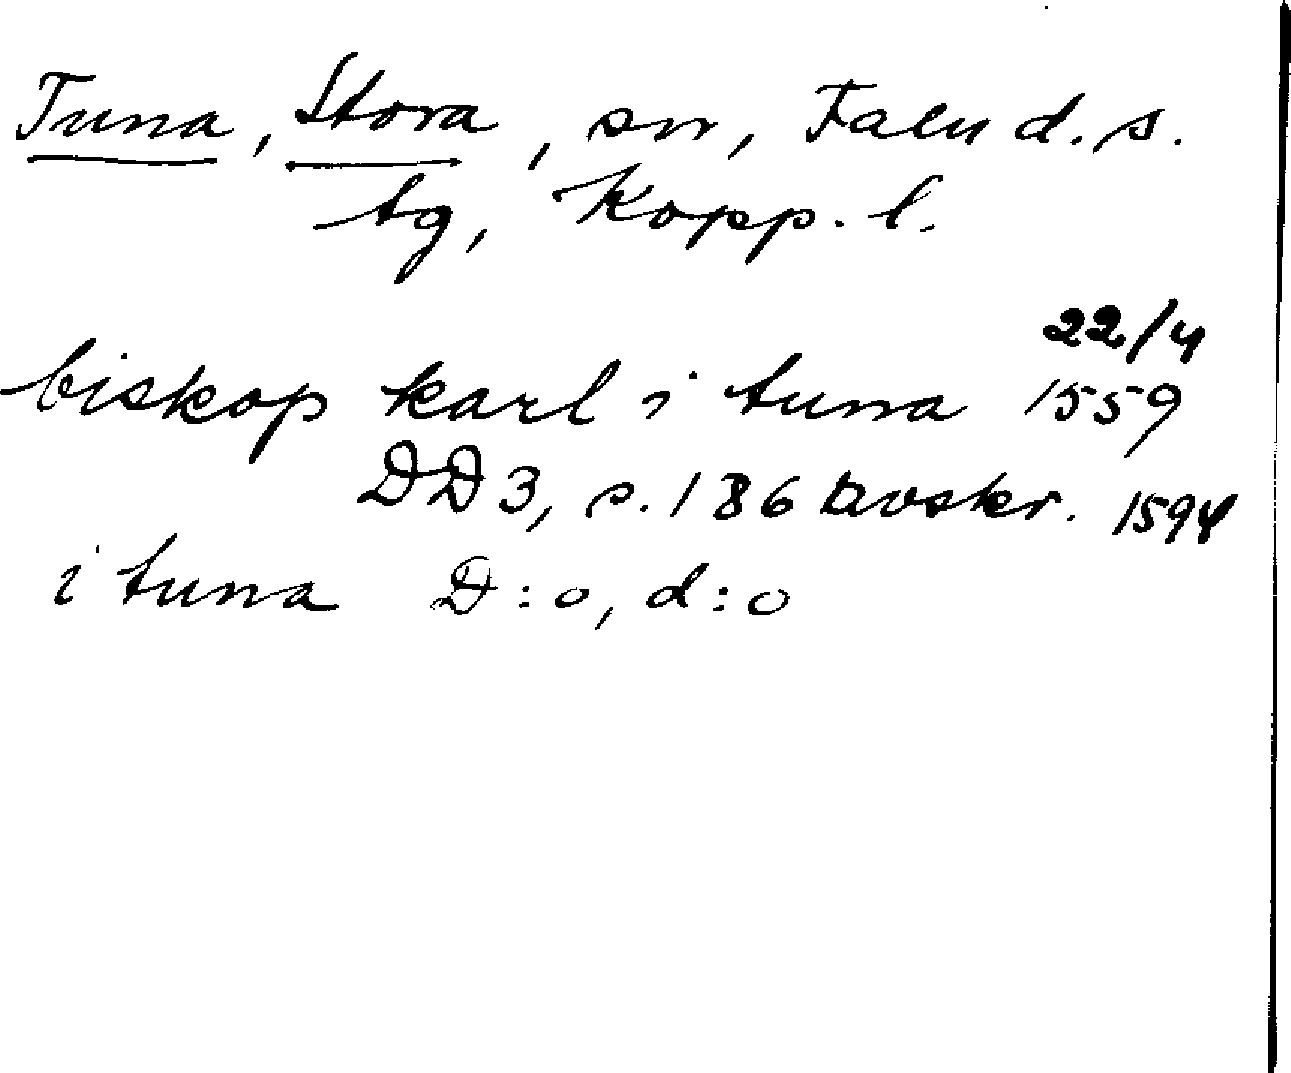 Tuna, Stora, sn, Falu d. s.
tg, Kopp. l.
22/4
biskop karl i tuna 1559
DD 3, s. 186 avskr. 1594
i tuna D:o, d:o